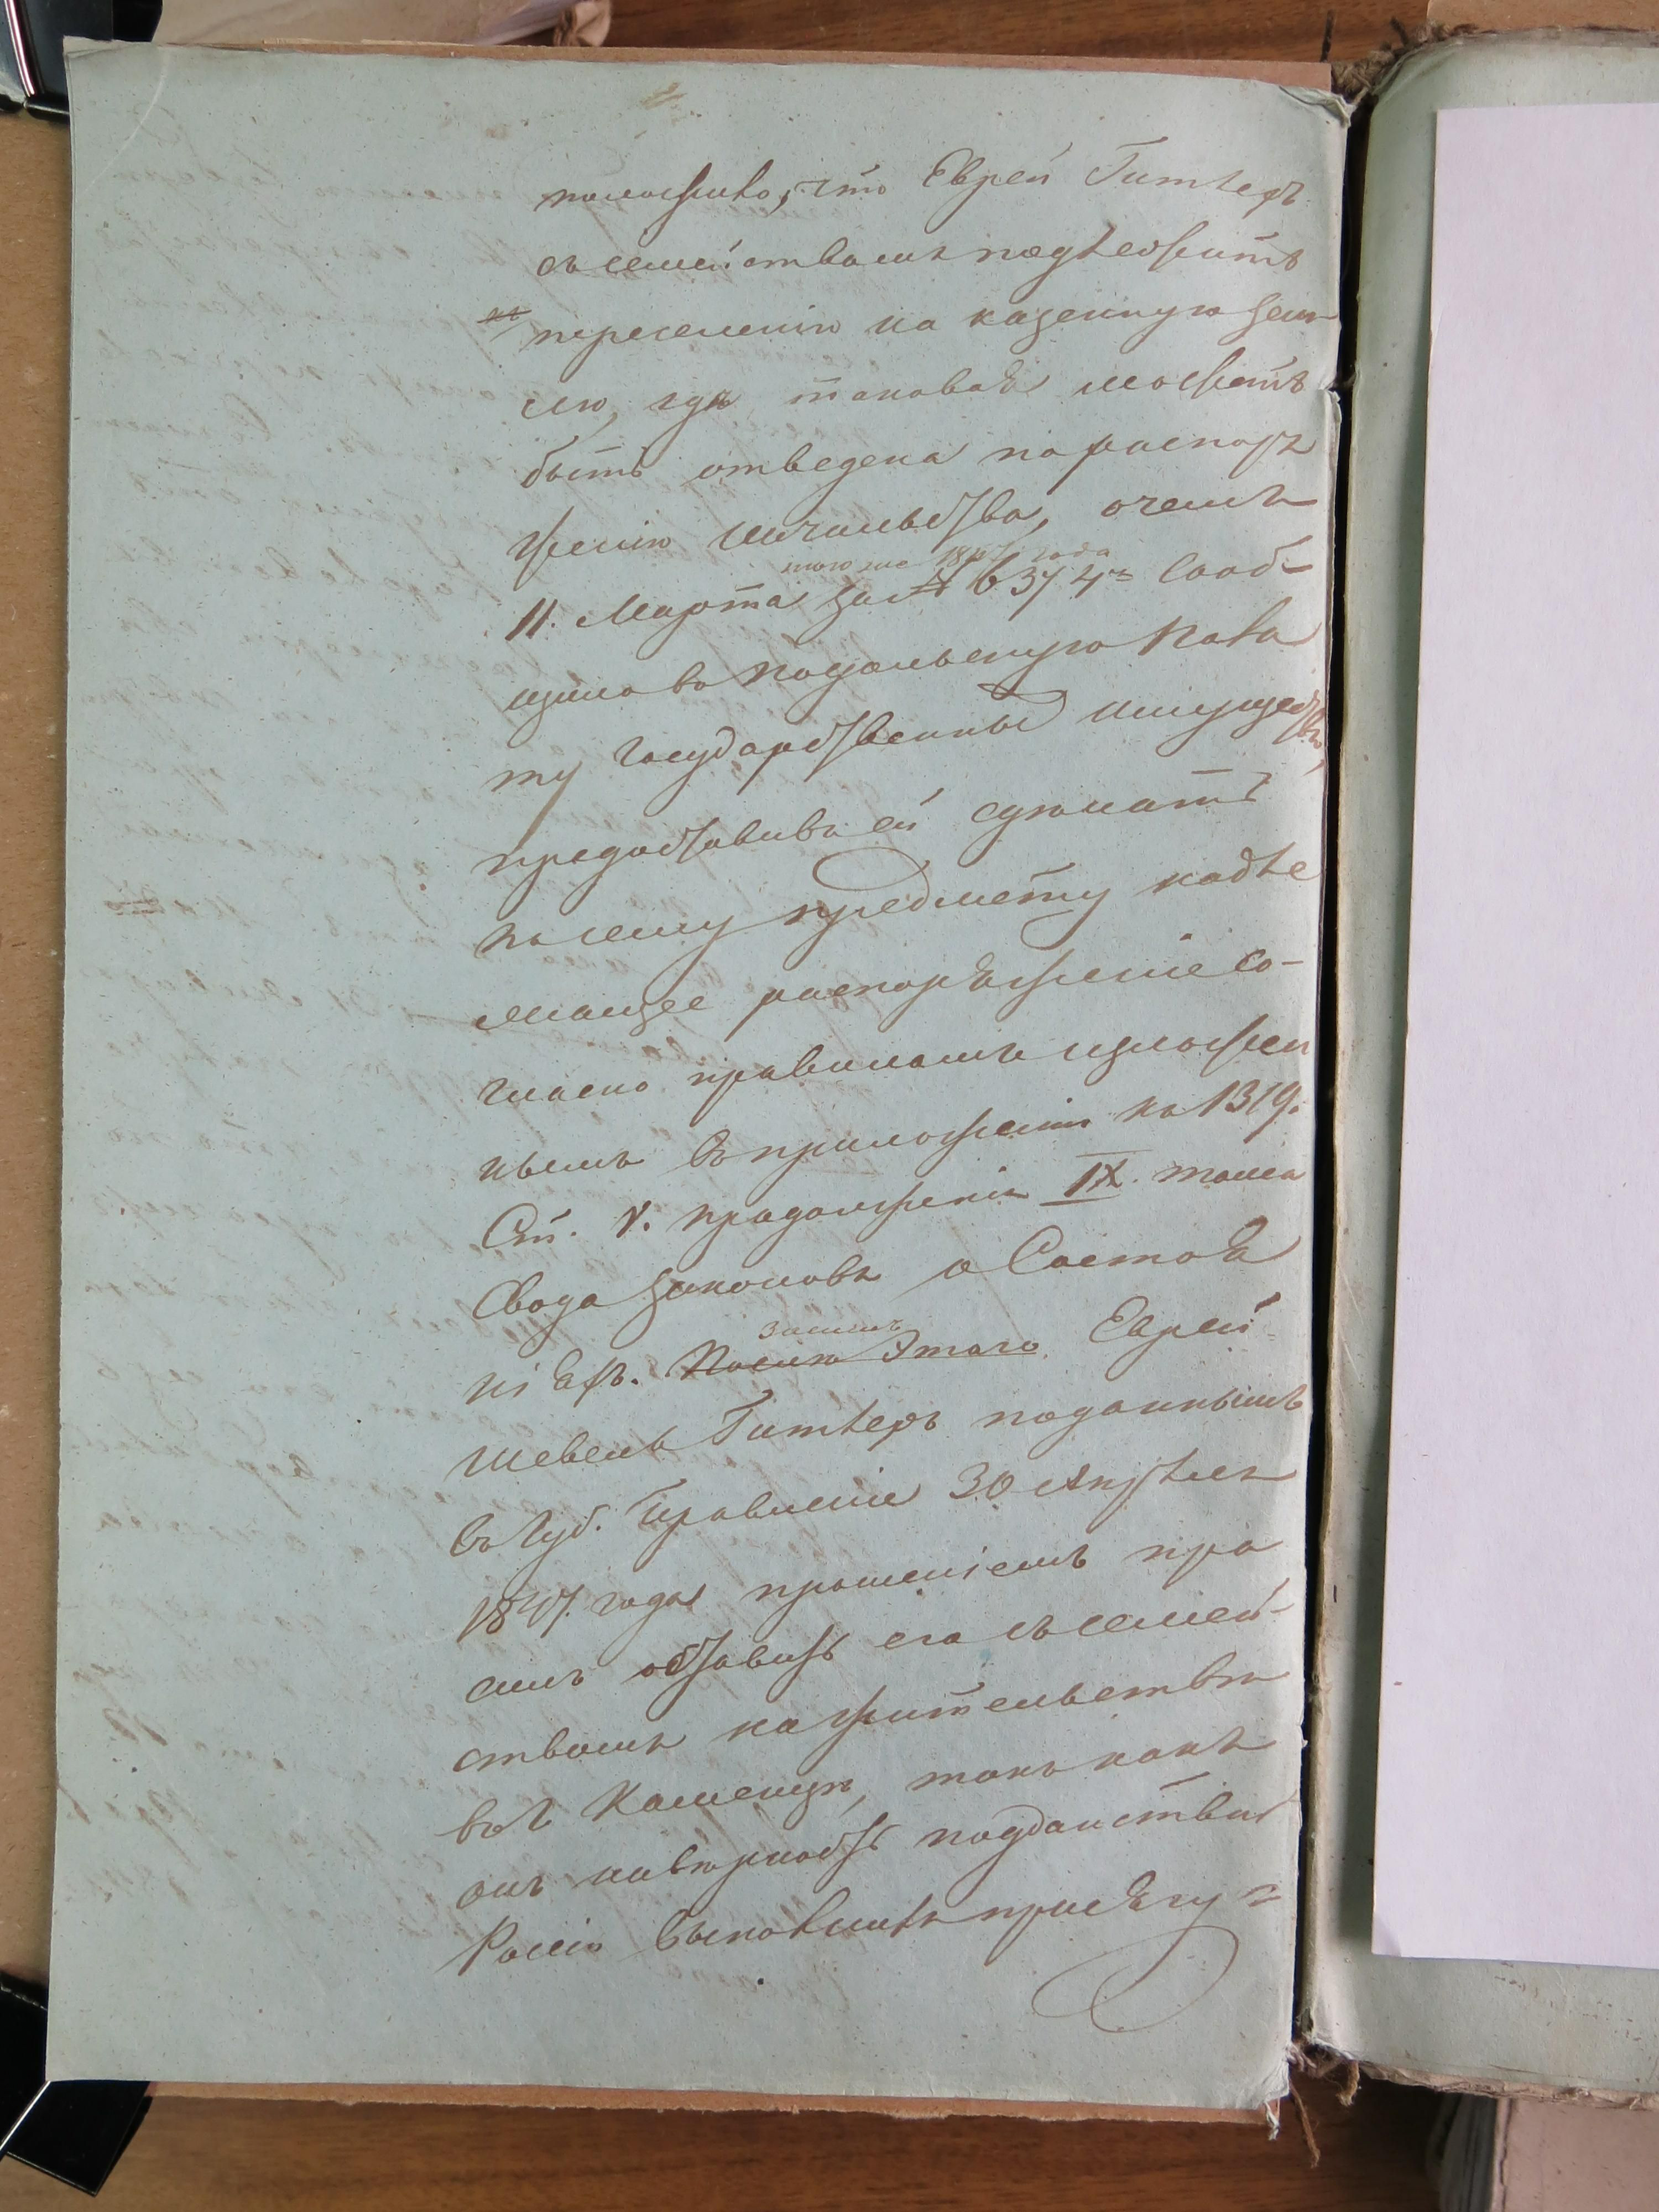 положило, что Еврей Гитлеръ
съ семействомъ подлежитъ
къ переселенію на казенную зем-
лю, гдѣ таковая можетъ
быть отведена по распоря
женію Начальства, о чемъ
того же 1847 года
11. Марта за № 6374ᵐ Сооб-
щило въ Подольскую Пала
ту Государственныхъ Имуществъ,
предоставивъ ей сдѣлать
по сему предмету надле
жащее распоряженіе со-
гласно правиламъ изложен
нымъ въ приложеніи къ 1319.
Ст. V. продолженія IX. тома
Свода Законовъ о Состоя
ніяхъ. После этого Еврей
Затемъ
Шевель Гитлеръ поданнымъ
въ Губ. Правленіе 30 Апреля
1847. года прошеніемъ про
силъ оставить его съ семей-
ствомъ на жительствѣ
въ Г Каменцѣ, такъ какъ
онъ на вѣрность подданства
Россіи выполнилъ присягу